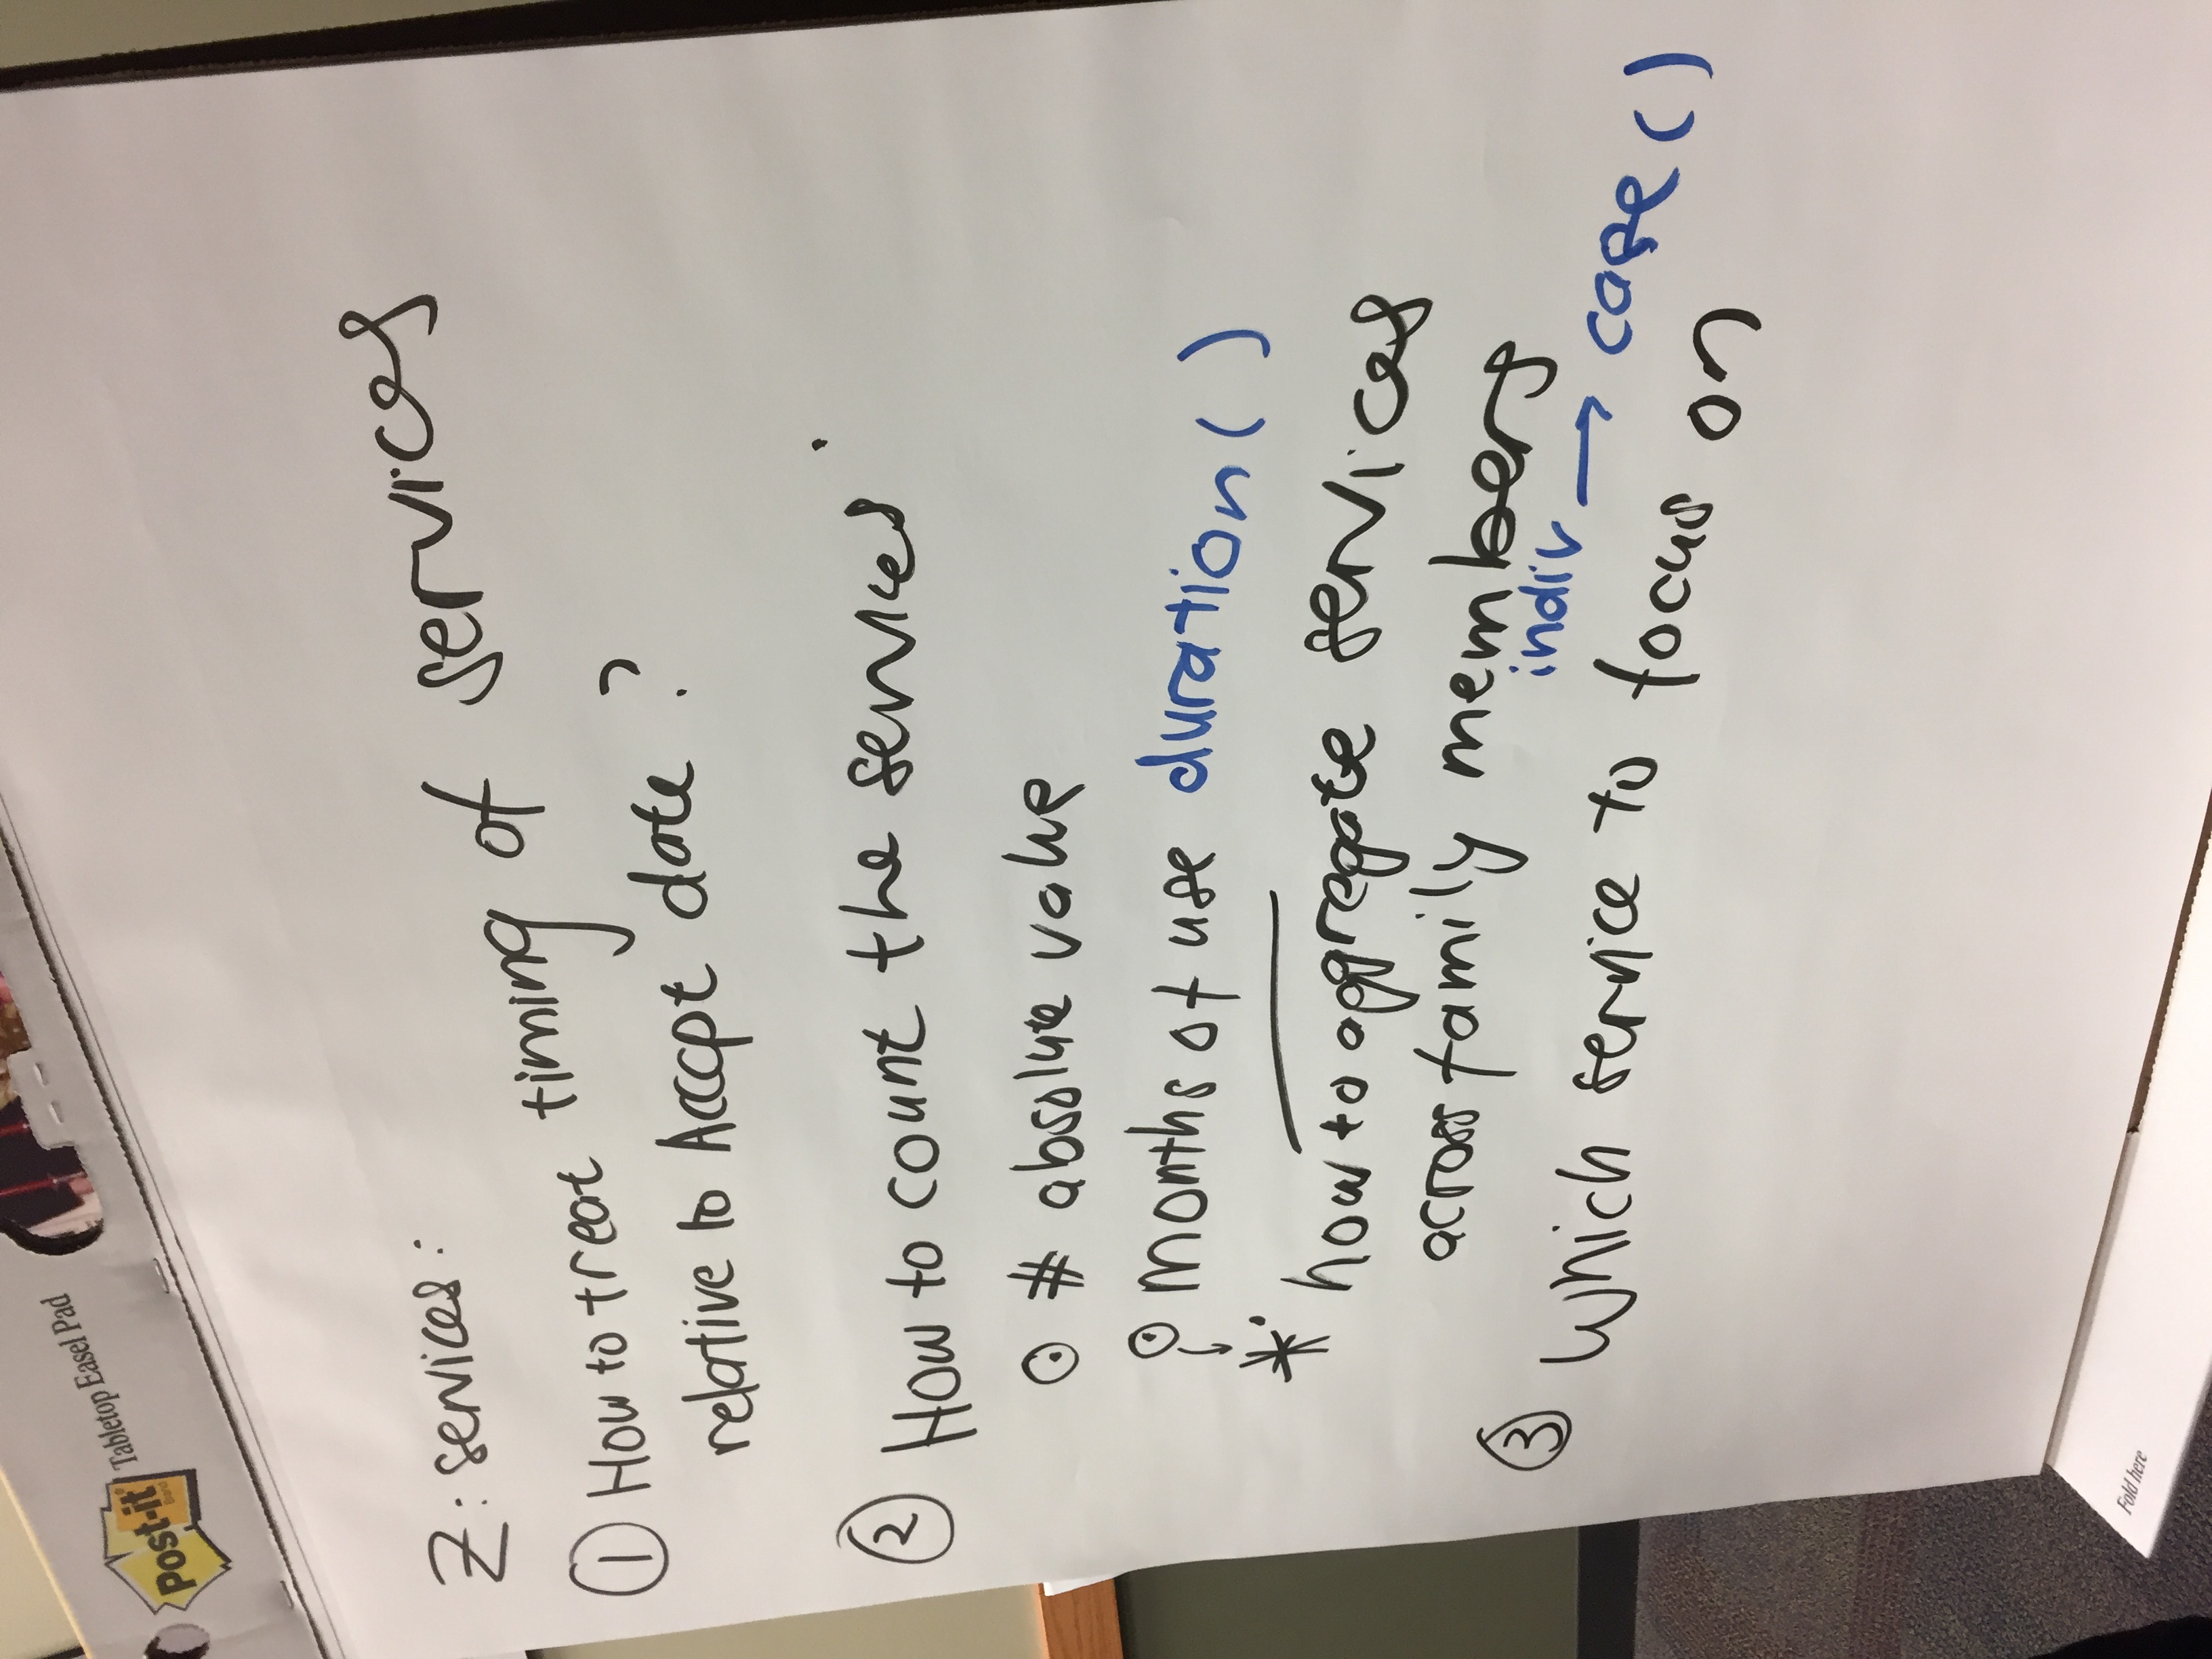 Post-it Brand Tabletop Easel Pad
Z: services:
① How to treat timing of services
relative to Accept date ?
② How to count the services
# absolute value
months of use duration ( )
* how to aggregate services
across family members
indiv → case ( )
③ Which service to focus on
Fold here